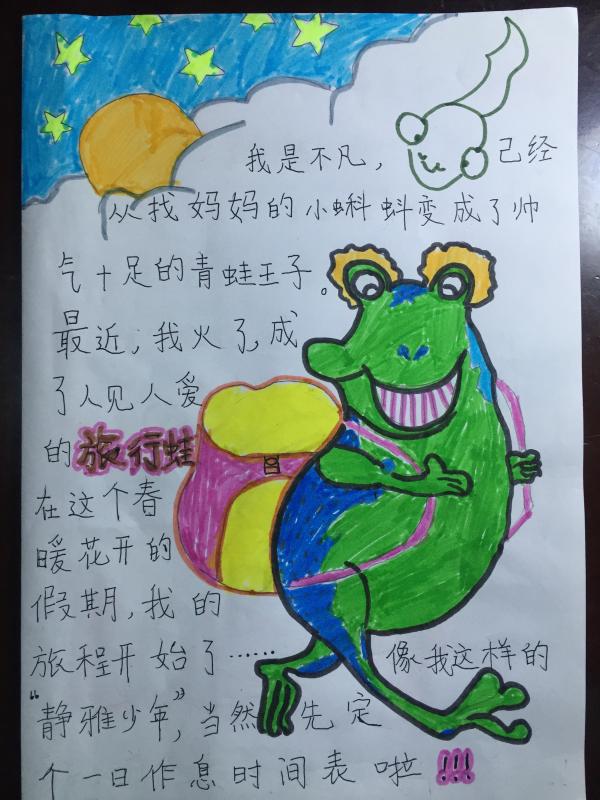 我是不凡，己经
从找妈妈的小蝌蚪变成了帅
气十足的青蛙王子。
最近，我火了，成
了人见人爱
的旅行蛙
在这个春
暖花开的
假期，我的
旅程开始了……像我这样的
“静雅少年”，当然先定
个一日作息时间表啦!!!